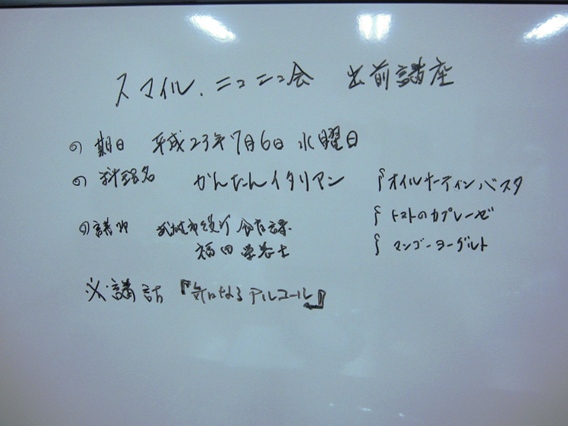 スマイル.ニコニコ会 出前講座
の 期日 平成23年7月6日 水曜日
の 料理名 かんたんイタリアン
オイルサーディンパスタ
トマトのカプレーゼ
マンゴーヨーグルト
の 講師
福田 栄養士
※講話『気になるアルコール』